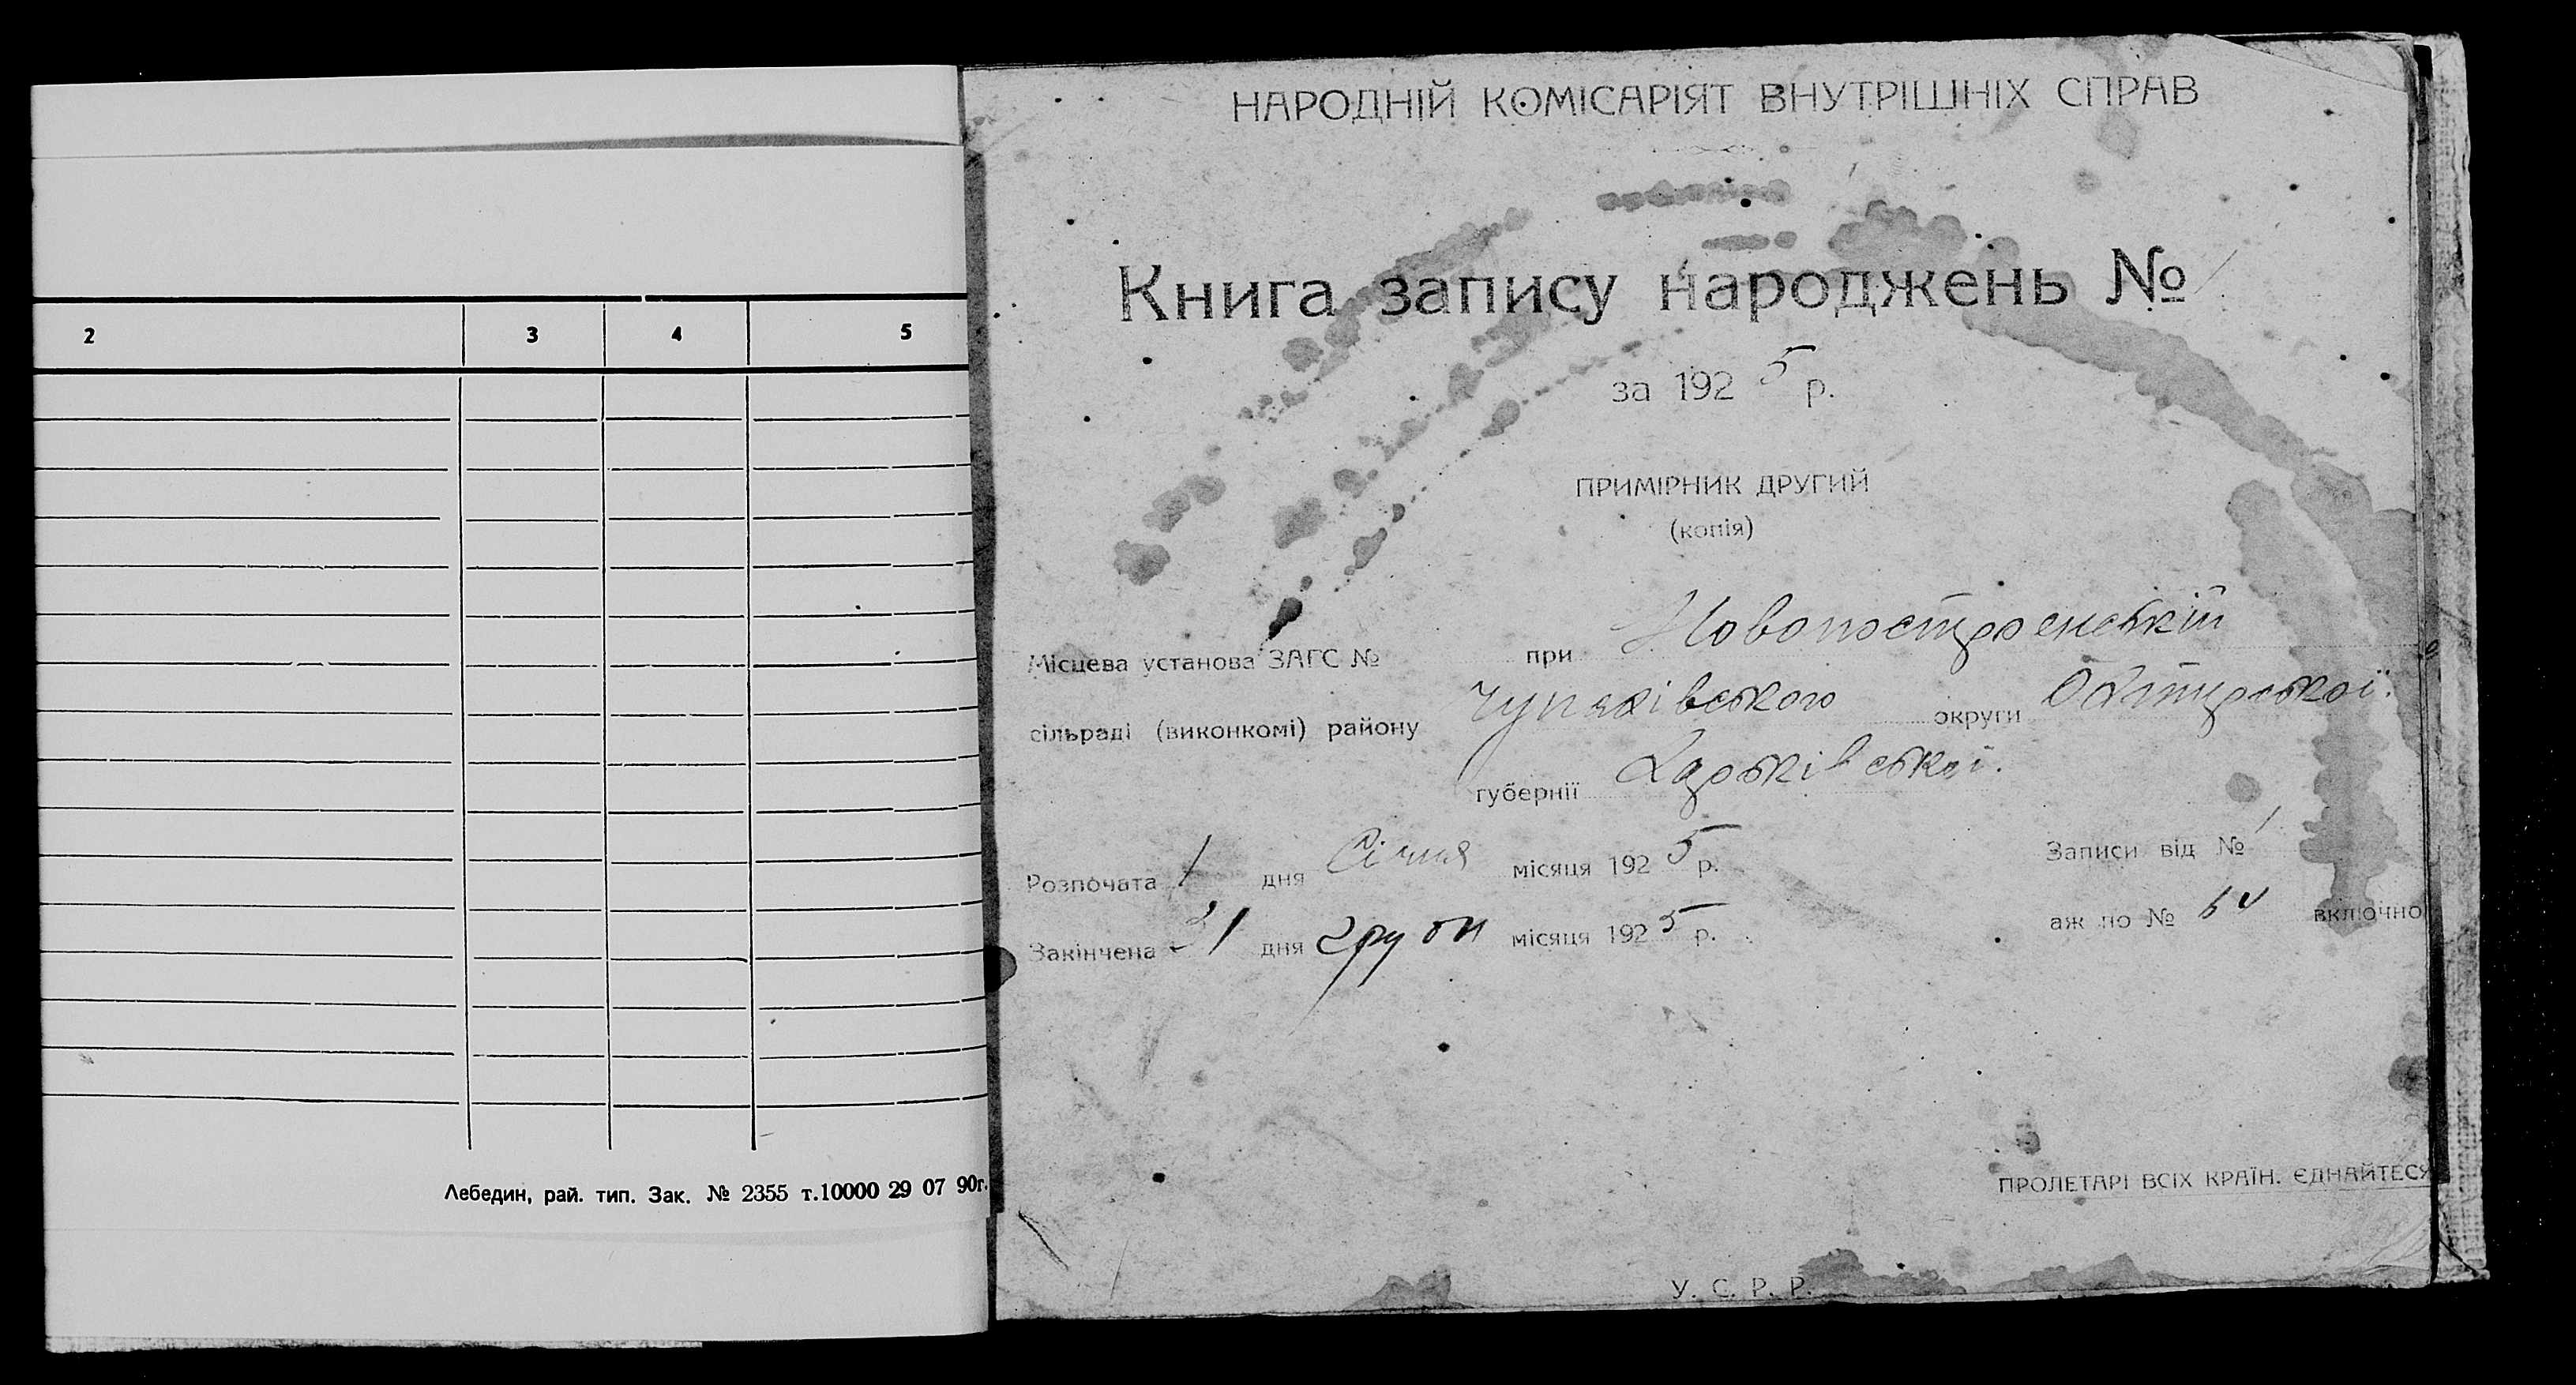 2 3 4 5
Лебедин, рай. тип. Зак. № 2355 т.10000 29 07 90г.
НАРОДНІЙ КОМІСАРІЯТ ВНУТРІШНІХ СПРАВ
Книга запису народжень № 1
за 1925 р.
ПРИМІРНИК ДРУГИЙ
(копія)
Місцева установа ЗАГС № при
сільраді (виконкомі) району Чупахівського округи
губернії Харьківської.
Розпочата 1 дня Січня місяця 1925 р.
Записи від № 1
Закінчена 31 дня місяця 1925 р.
аж по № включно
ПРОЛЕТАРІ ВСІХ КРАЇН. ЄДНАЙТЕСЯ
У. С. Р. Р.